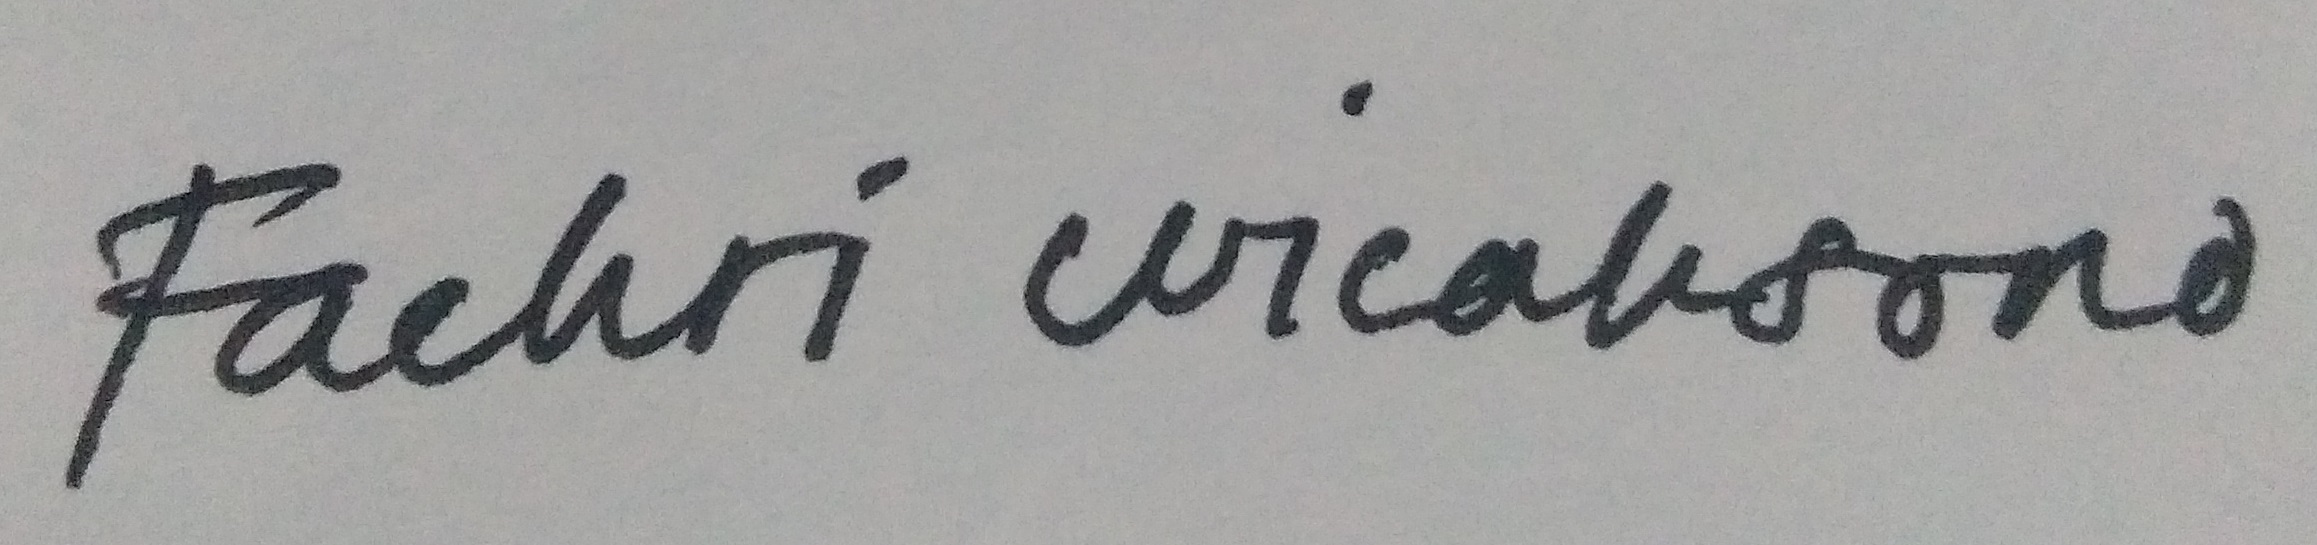 Fachri wicaksono